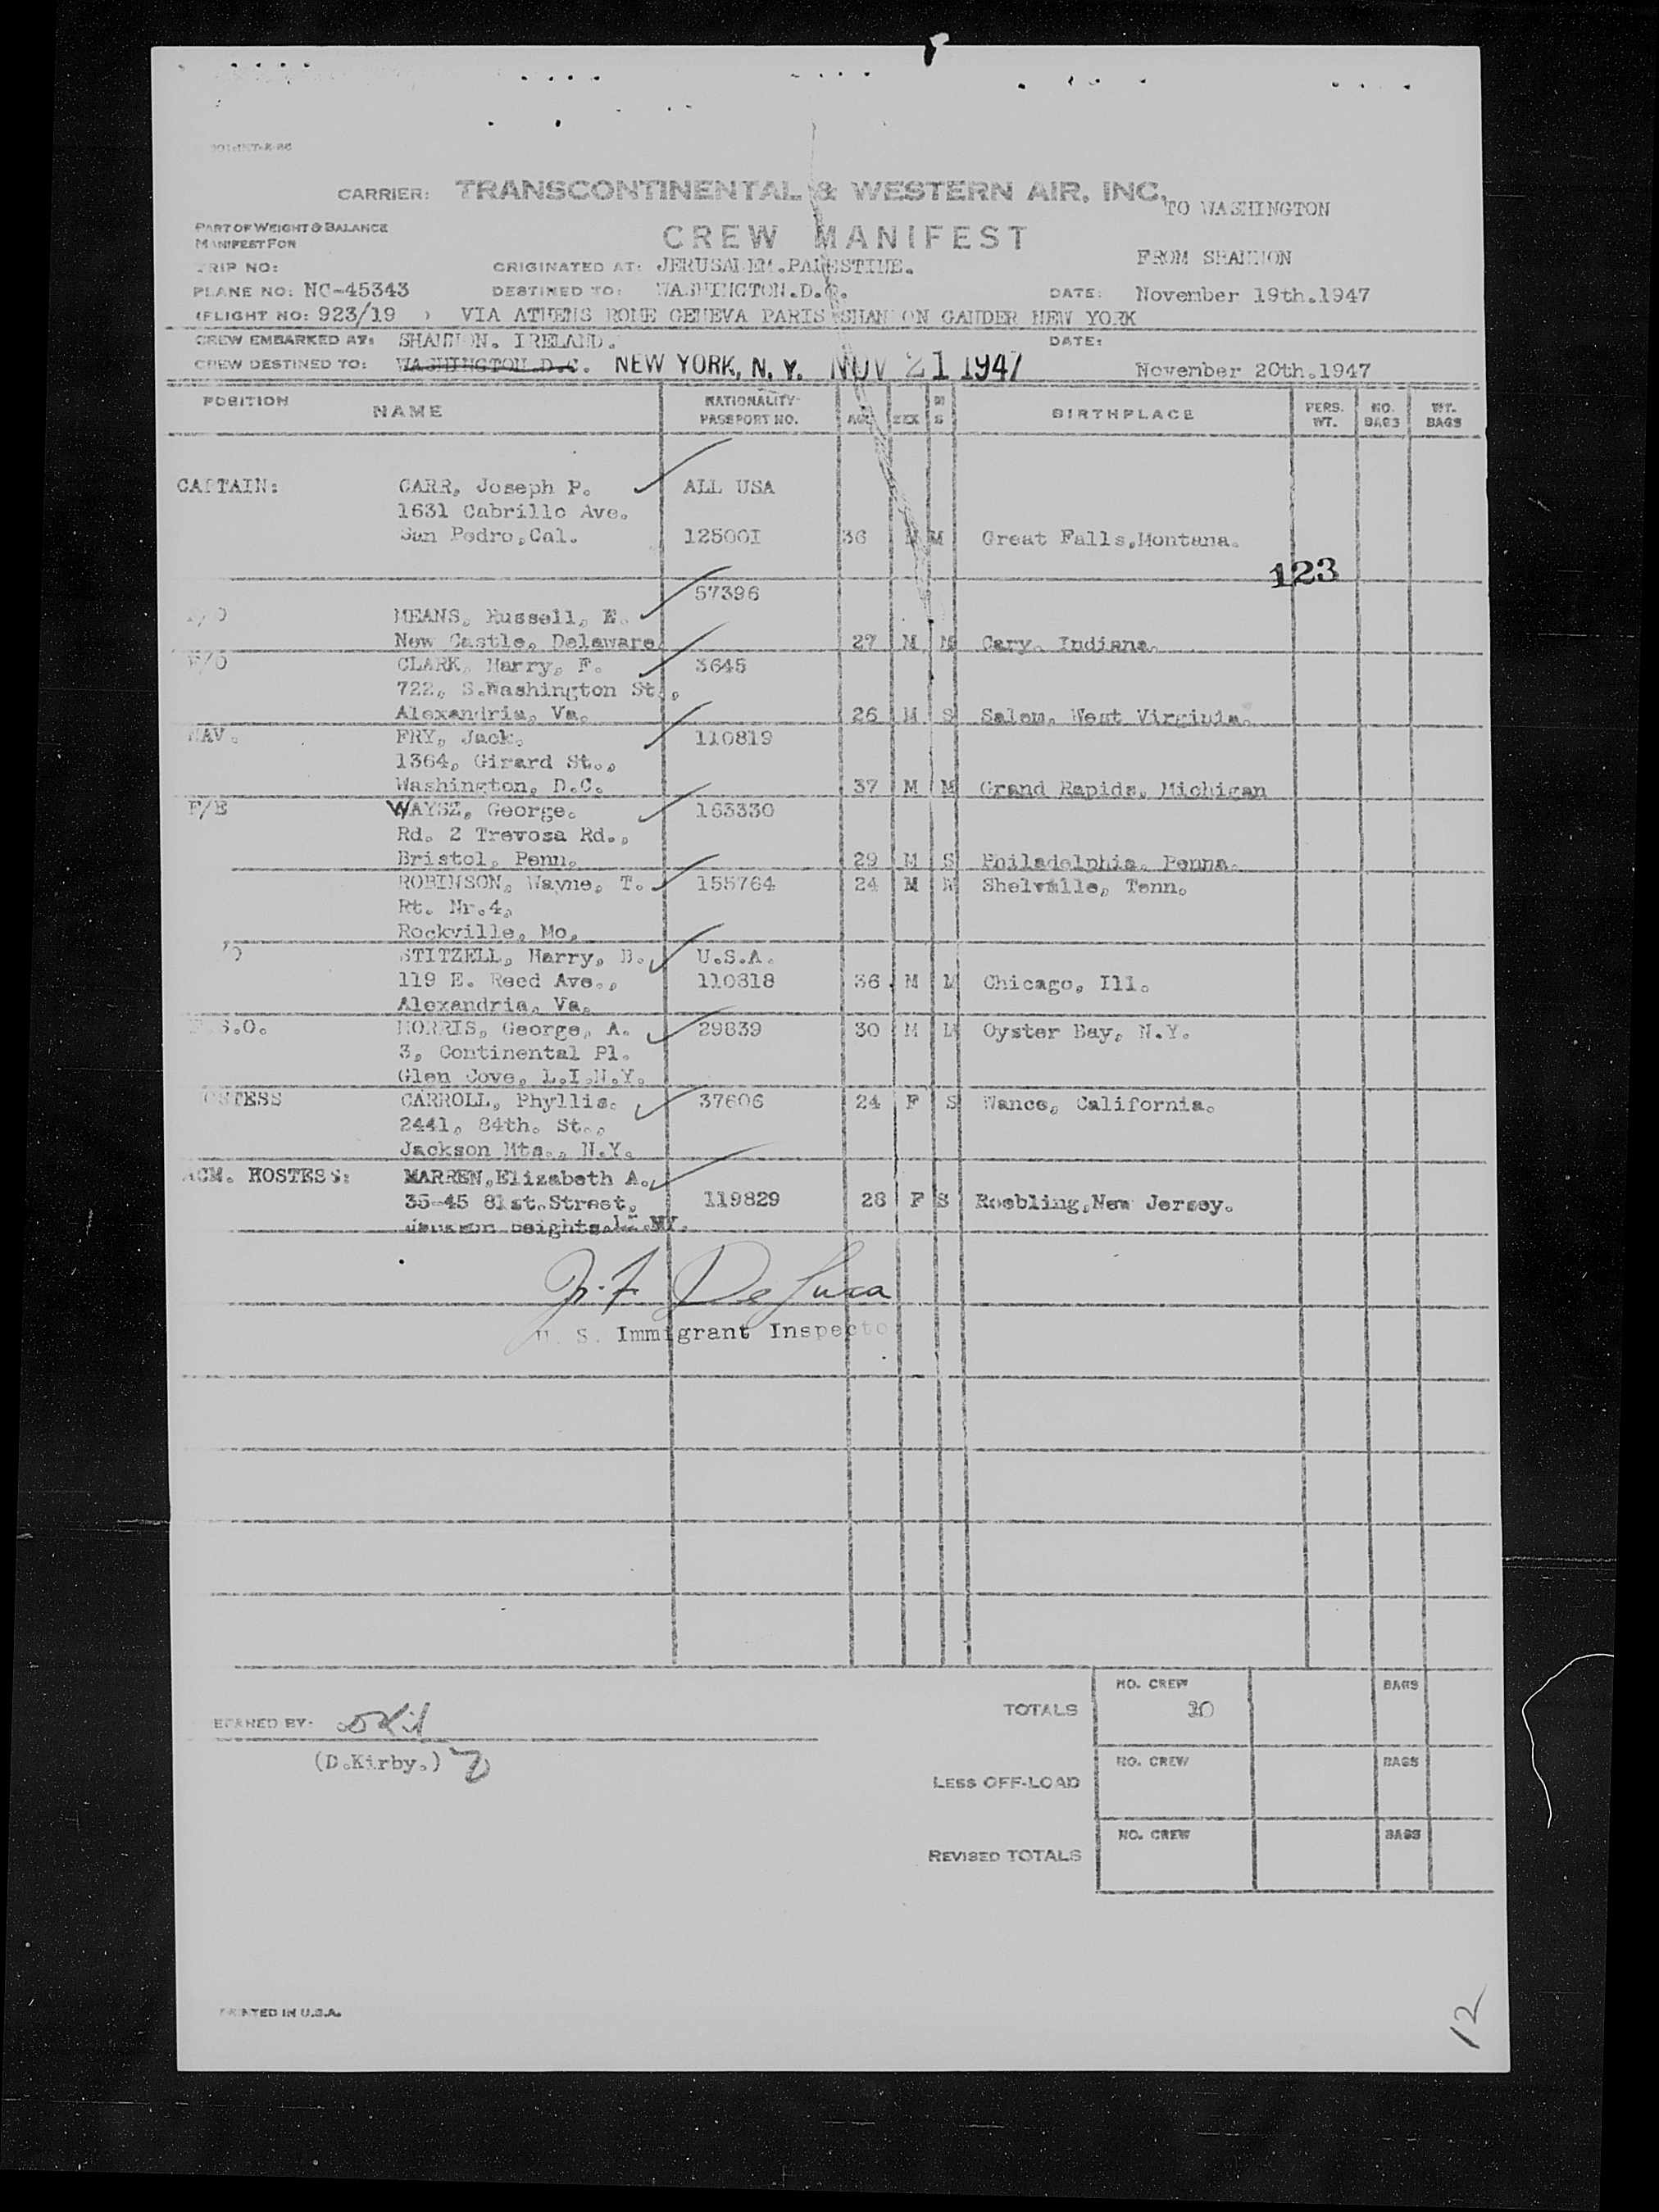 CARRIER: TRANSCONTINENTAL & WESTERN AIR, INC.
TO WASHINGTON
PART OF WEIGHT & BALANCE
MANIFEST FOR
CREW MANIFEST
FROM SHANNON
TRIP NO:
ORIGINATED AT: JERUSALEM.PALESTINE.
PLANE NO: NC-45343
DESTINED TO: WASHINGTON.D.C.
DATE: November 19th.1947
(FLIGHT NO: 923/19 ) VIA ATHENS ROME GENEVA PARIS SHANNON GANDER NEW YORK
CREW EMBARKED AT: SHANNON. IRELAND.
DATE:
CREW DESTINED TO: WASHINGTON.D.C. NEW YORK, N. Y. NOV 21 1947
November 20th.1947
POSITION NAME NATIONALITY- PASSPORT NO. AGE SEX M S BIRTHPLACE PERS. WT. NO. BAGS WT. BAGS
CAPTAIN: CARR, Joseph P. ALL USA
1631 Cabrillo Ave.
San Pedro,Cal. 125001 36 M M Great Falls,Montana.
123
57396
F/O MEANS, Russell, E.
New Castle, Delaware 27 M M Gary. Indiana.
F/O CLARK, Harry, F. 3645
722, S.Washington St.,
Alexandria, Va. 26 M S Salem. West Virginia.
NAV. FRY, Jack. 110819
1364, Girard St.,
Washington, D.C. 37 M M Grand Rapids, Michigan
F/E WAYSZ, George. 163330
Rd. 2 Trevosa Rd.,
Bristol, Penn. 29 M S Philadelphia. Penna.
ROBINSON, Wayne, T. 155764 24 M M Shelville, Tenn.
Rt. Nr.4,
Rockville, Mo,
STITZELL, Harry, B. U.S.A.
119 E. Reed Ave., 110818 36 M M Chicago, Ill.
Alexandria, Va.
S.O. MORRIS, George, A. 29839 30 M M Oyster Bay, N.Y.
3, Continental Pl.
Glen Cove, L.I.N.Y.
HOSTESS CARROLL, Phyllis. 37606 24 F S Wance, California.
2441, 84th. St.,
Jackson Hts., N.Y.
ACM. HOSTESS: MARREN,Elizabeth A.,
35-45 81st.Street, 119829 28 F S Roebling,New Jersey.
Jackson heights. NY.
De Luca
U. S. Immigrant Inspector
TOTALS NO. CREW 10 BAGS
PREPARED BY:
(D.Kirby.)
LESS OFF-LOAD NO. CREW BAGS
REVISED TOTALS NO. CREW BAGS
PRINTED IN U.S.A.
12